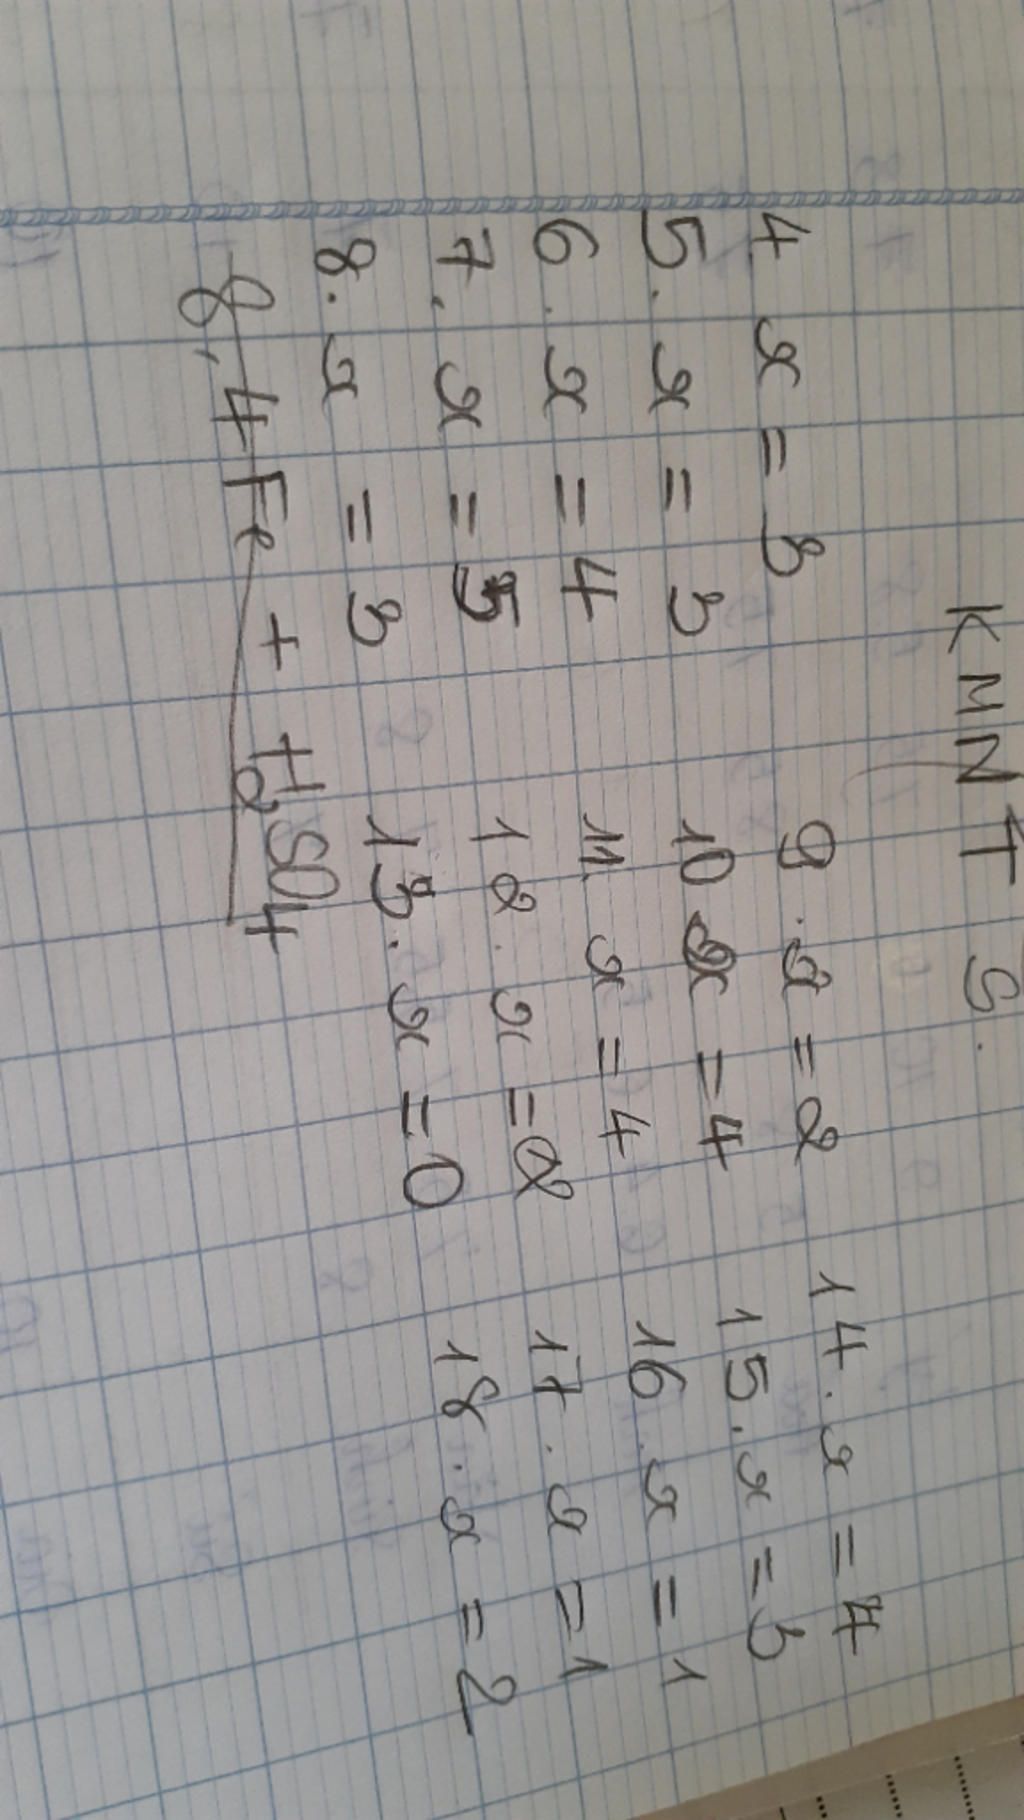 KMNTS.
4. x = 3
5. x = 3
6. x = 4
7. x = 5
8. x = 3
8,4Fe + H2SO4
9. x = 2
10 x = 4
11. x = 4
12. x = 2
13. x = 0
14. x = 4
15. x = 3
16. x = 1
17. x = 1
18. x = 2